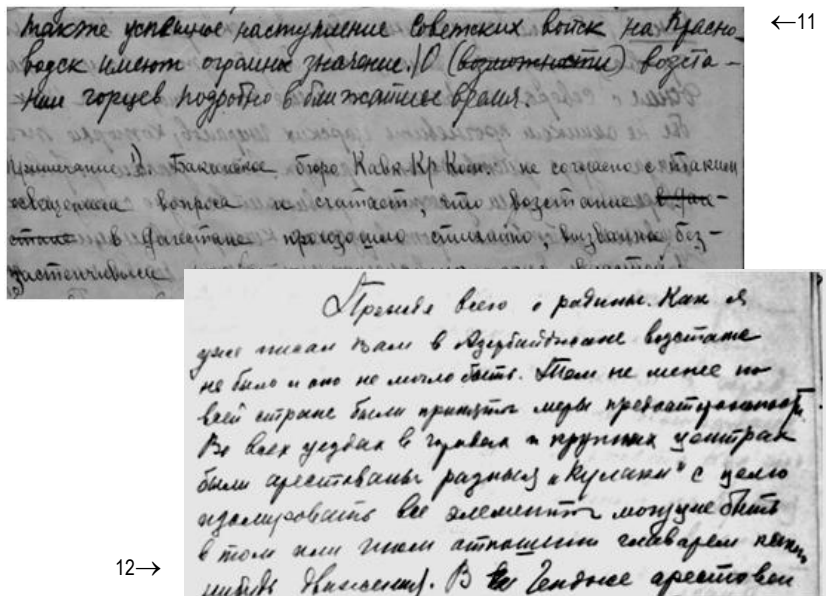 также успешное наступление Советских войск на Красно-
водск имеют огромное значение. О (возможности) возста-
нии горцев подробно в ближайшее время.
←11
Примечание: Бакинское бюро Кавк. Кр. Ком. не согласно с таким
освещением вопроса и считает, что возстание в Даге-
стане в Дагестане произошло стихийно, вызванно без-
застенчивым
Прежде всего о родине. Как я
уже писал вам в Азербайджане возстание
не было и оно не могло быть. Тем не менее по
всей стране были приняты меры предосторожности.
Во всех уездах в городах и крупных центрах
были арестованы разныя "кулаки" с целю
изолировать все элементы могущие быть
в том или ином отношении главарем
нибудь движения. В Гендже арестован
12→